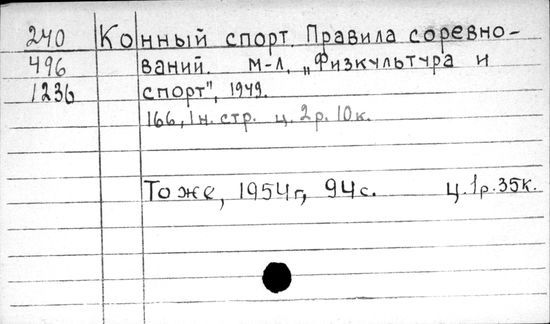 240 Конный спорт. Правила соревно-
496 ваний. М-Л, „Физкультура и
1236 спорт", 1949.
166, 1 н. стр. ц. 2 р. 10 к.
То же, 1954 г, 94 с. ц. 1 р. 35 к.